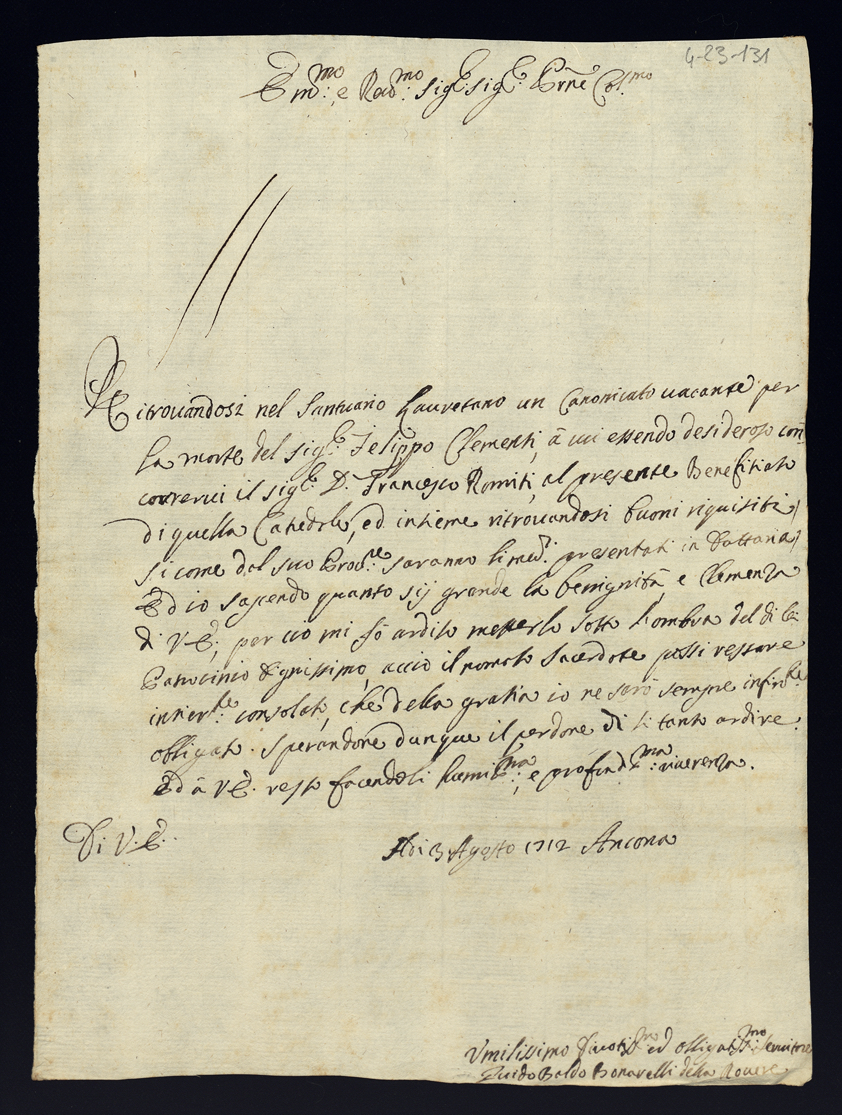 4-23-131
Em.mo e Rad.mo Sig.r Sig.r Prne Col.mo
Ritrouandosi nel Santuario Lauretano un Canonicato uacante per
la morte del sig.r Felippo Clementi, à cui essendo desideroso con=
correrui il sig.r D. Francesco Romiti, al presente Benefitiato
di quella Catedrle, ed insieme ritrouandosi buoni riquisiti,
si come dal suo Proc.re saranno li med.i presentati in Dattaria,
Ed io sapendo quanto sij grande la benignità, e Clemenza
di V.E., per ciò mi fò ardito metterlo sotto l'ombra del di lei
Patrocinio Dignissimo, acciò il nomato Sacerdote possi restare
consolato, che della gratia io ne sarò sempre
obligato. Sperandone dunque il perdone di si tanto ardire.
Ed à V.E. resto facendoli humil.ma, e profond.ma riuerenza.
Di V.E.
Adi 3 Agosto 1712 Ancona
Vmilissimo Diuotis.mo ed obligat.mo Seruitore
Guido Baldo Bonarelli della Rouere